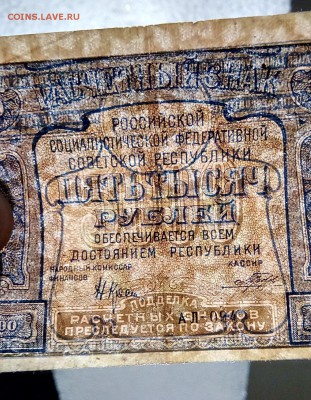 COINS.LAVE.RU
РАСЧЕТНЫЙ ЗНАК
РОССИЙСКОЙ
СОЦИАЛИСТИЧЕСКОЙ ФЕДЕРАТИВНОЙ
СОВЕТСКОЙ РЕСПУБЛИКИ
ПЯТЬ ТЫСЯЧ
РУБЛЕЙ
ОБЕСПЕЧИВАЕТСЯ ВСЕМ
ДОСТОЯНИЕМ РЕСПУБЛИКИ
НАРОДНЫЙ КОМИССАР КАССИР
ФИНАНСОВ
ПОДДЕЛКА
РАСЧЕТНЫХ ЗНАКОВ
ПРЕСЛЕДУЕТСЯ ПО ЗАКОНУ